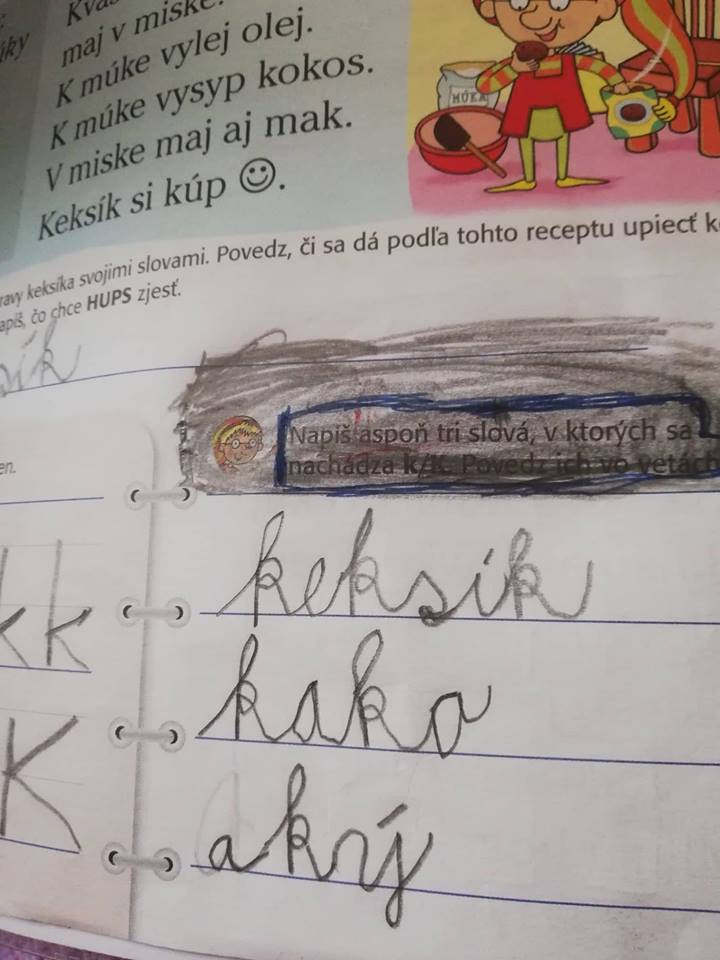 maj v miske.
K múke vylej olej.
K múke vysyp kokos.
V miske maj aj mak.
Keksík si kúp ☺.
MÚKA
keksíka svojimi slovami. Povedz, či sa dá podľa tohto receptu upiecť
čo chce HUPS zjesť.
Napíš aspoň tri slová, v ktorých sa
nachádza k/K. Povedz ich vo vetách
kk
keksík
kako
K
aký